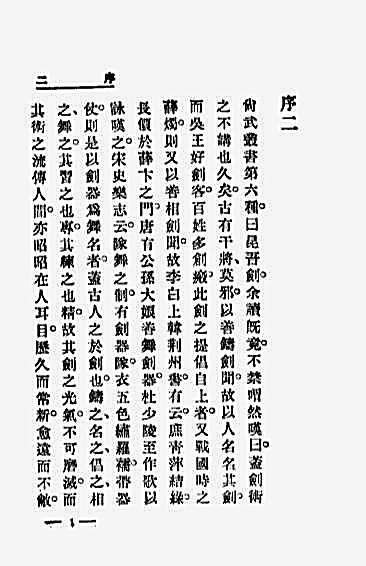 序 二
序二
尙武叢書第六種。曰昆吾劍。余讀旣竟。不禁喟然嘆曰。蓋劍術
之不講也久矣。古有干將、莫邪。以善鑄劍聞。故以人名名其劍。
而吳王好劍客。百姓多創瘢。此劍之提倡自上者。又戰國時之
薛燭。則又以善相劍聞。故李白上韓荆州書。有云。庶靑萍結綠。
長價於薛卞之門。唐有公孫大娘善舞劍器。杜少陵至作歌以
詠嘆之。宋史樂志云。隊舞之制。有劍器隊。衣五色繡羅襦。帶器
仗。則是以劍器爲舞名者。蓋古人之於劍也。鑄之、名之、倡之、相
之、舞之。其習之也專。其練之也精。故其劍之光氣。不可磨滅。而
其術之流傳人間。亦昭昭在人耳目。歷久而常新。愈遠而不敝。
— 1 —